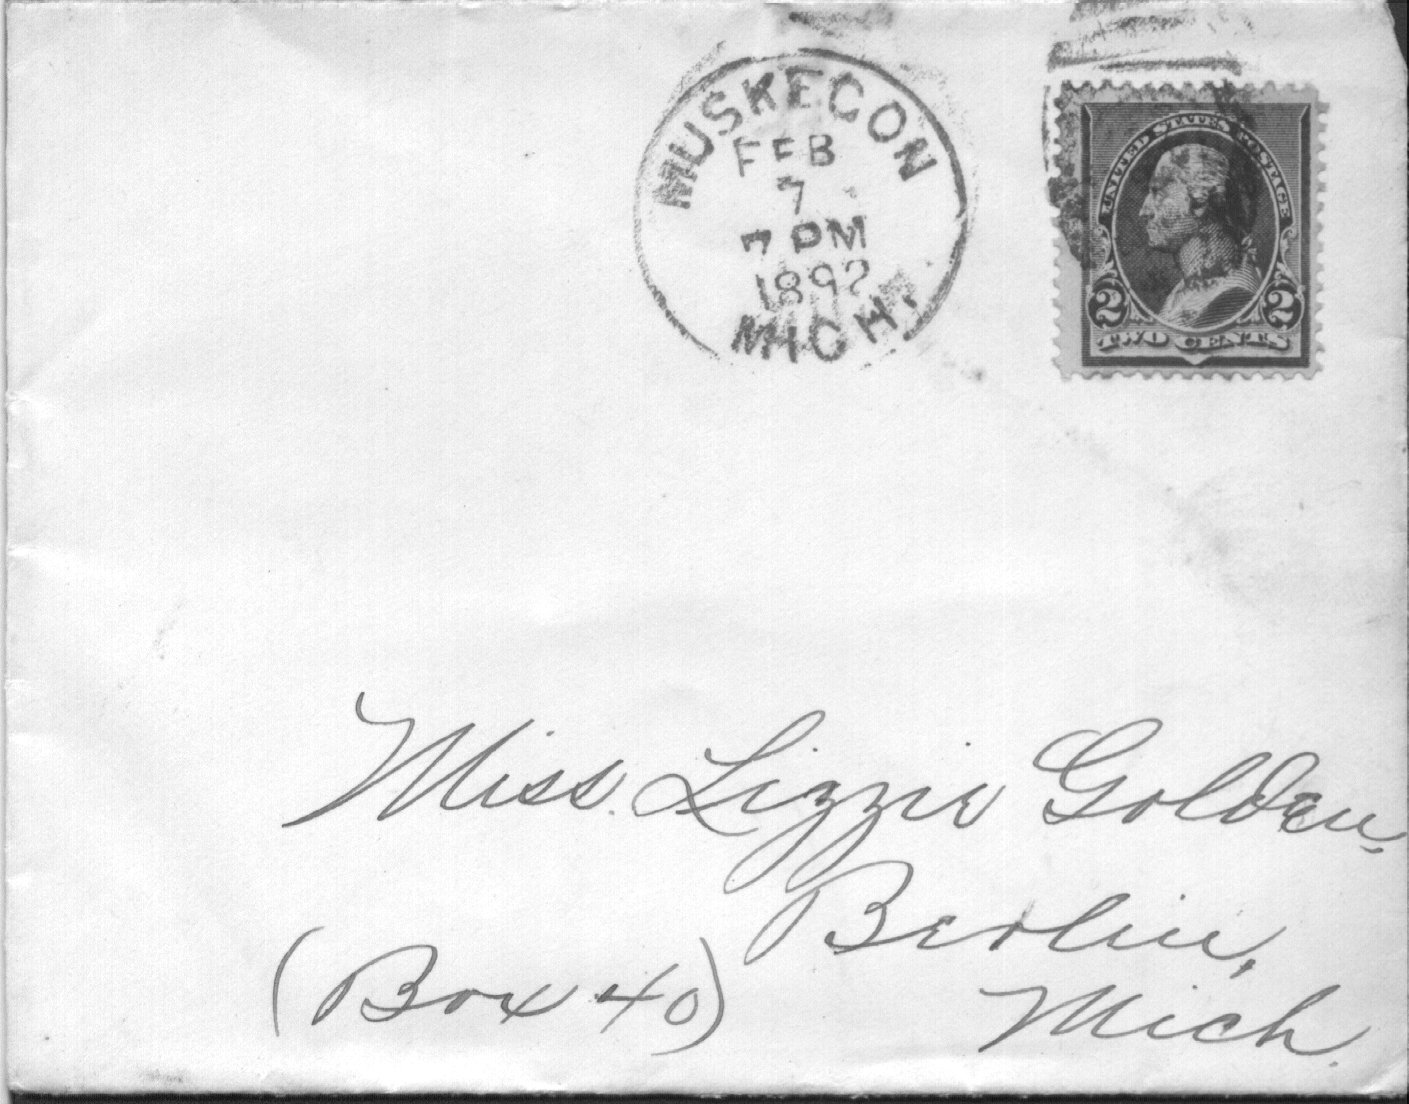 MUSKEGON
FEB
7
7 PM
1892
MICH.
UNITED STATES POSTAGE
2 2
TWO CENTS
Miss. Lizzie Golden,
Berlin,
(Box 40)
Mich.